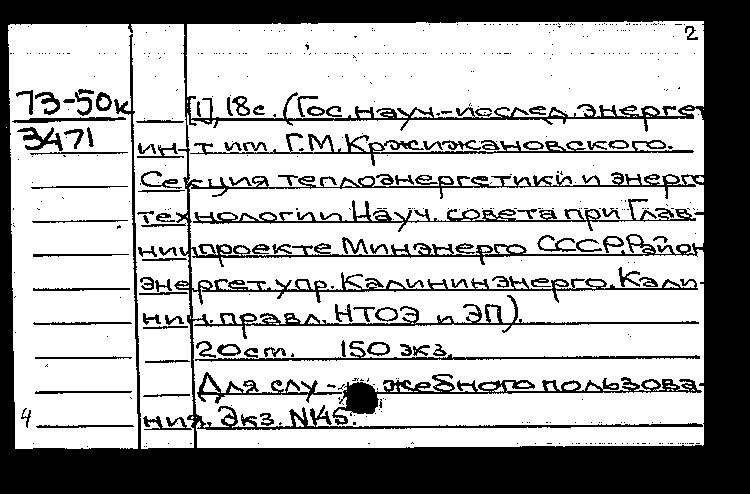 2
73-50к [1], 18с. (Гос. науч.-исслед. энергет
3471 ин-т им. Г.М. Кржижановского.
Секция теплоэнергетики и энерго
технологии Науч. совета при Глав-
ниипроекте Минэнерго СССР. Район
энергет. упр. Калининэнерго. Кали-
нин. правл. НТОЭ и ЭП).
20ст. 150 экз.
Для слу- жебного пользова-
4 ния. Экз. №145.